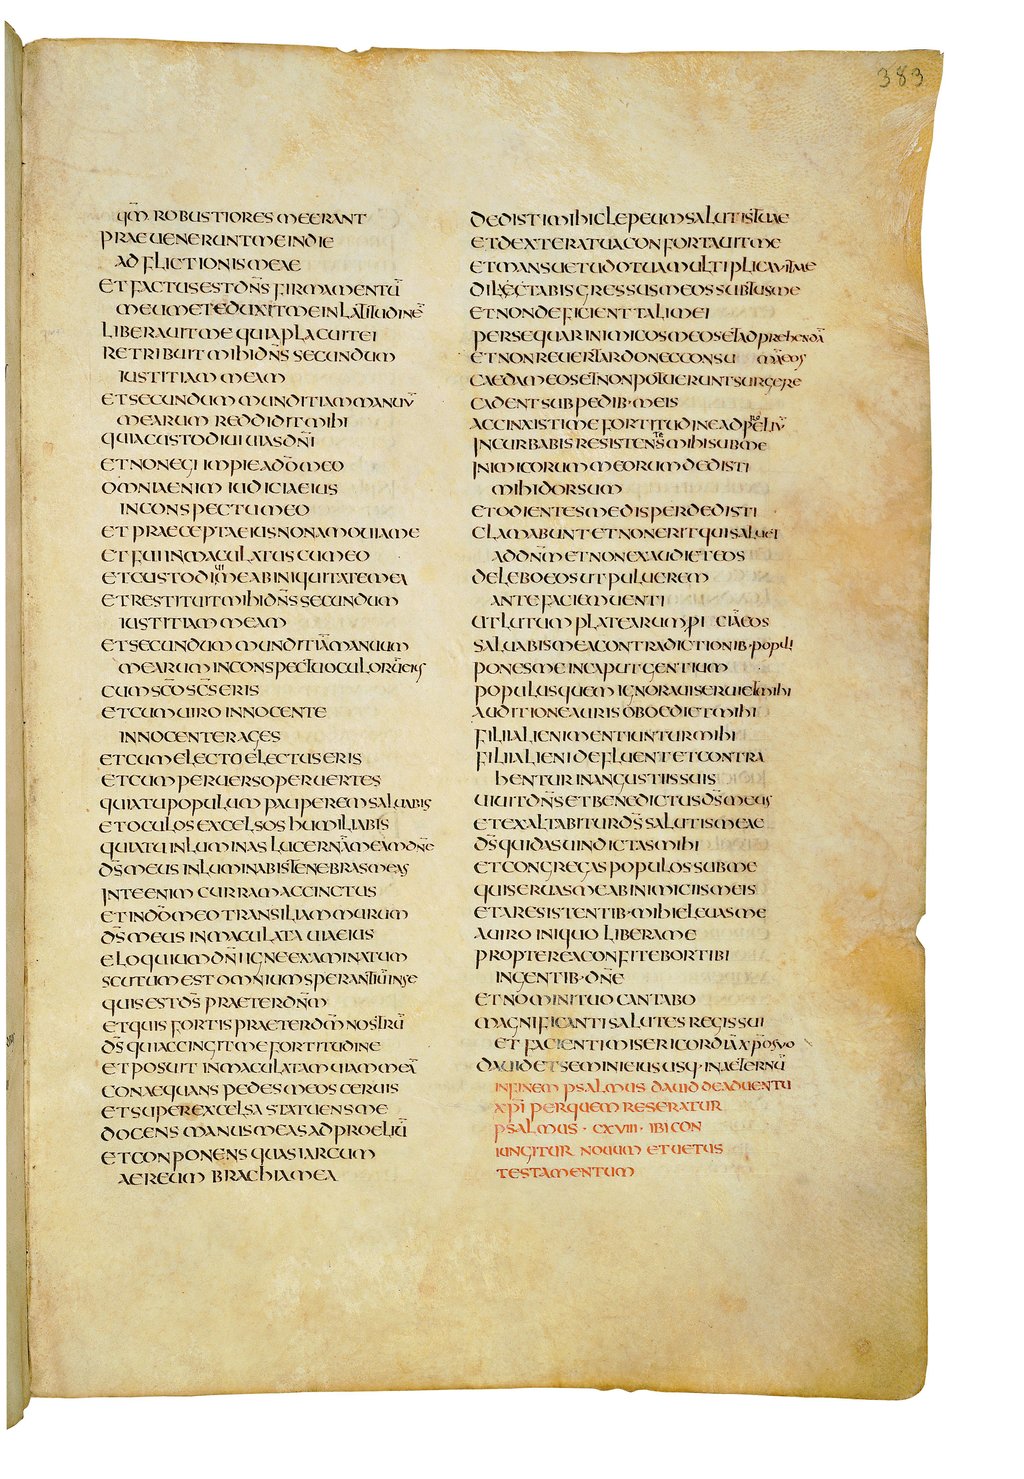 383
qm̄ ROBUSTIORES MEERANT
PRAEUENERUNTMEINDIE
ADFLICTIONISMEAE
ETFACTUSESTDN̄S FIRMAMENTŪ
MEUMETEDUXITMEINLATITUDINĒ
LIBERAUITMEQUIAPLACUITEI
RETRIBUITMIHIDN̄S SECUNDUM
IUSTITIAMMEAM
ETSECUNDUMMUNDITIAMMANUŪ
MEARUM REDDIDITMIHI
QUIACUSTODIUIUIASDN̄I
ETNONEGIIMPIEADŌMEO
OMNIAENIMIUDICIAEIUS
INCONSPECTUMEO
ETPRAECEPTAEIUSNONAMOUIAME
ETFUIINMACULATUSCUMEO
ETCUSTODIUIMEABINIQUITATEMEA
ETRESTITUITMIHIDN̄S SECUNDUM
IUSTITIAMMEAM
ETSECUNDUMMUNDITIĀMANUUM
MEARUMINCONSPECTUOCULORŪEIUS
CUMSC̄OSC̄SERIS
ETCUMUIROINNOCENTE
INNOCENTERAGES
ETCUMELECTOELECTUSERIS
ETCUMPERUERSOPERUERTES
QUIATUPOPULUMPAUPEREMSALUABIS
ETOCULOSEXCELSOSHUMILIABIS
QUIATUINLUMINASLUCERNĀMEĀMDN̄E
DS̄MEUSINLUMINABISTENEBRASMEAS
INTEENIMCURRAMACCINCTUS
ETINDŌMEOTRANSILIAMMURUM
DS̄MEUSINMACULATAUIAEIUS
ELOQUIUMDN̄IIGNEEXAMINATUM
SCUTUMESTOMNIUMSPERANTIŪINSE
QUISESTDS̄PRAETERDN̄M
ETQUISFORTISPRAETERDM̄NOSTRŪ
DS̄QUIACCINGITMEFORTITUDINE
ETPOSUITINMACULATAMUIAMMEĀ
CONAEQUANSPEDESMEOSCERUIS
ETSUPEREXCELSASTATUENSME
DOCENSMANUSMEASADPROELIŪ
ETCONPONENSQUASIARCUM
AEREUMBRACHIAMEA
DEDISTIMIHICLEPEUMSALUTISTUAE
ETDEXTERATUACONFORTAUITME
ETMANSUETUDOTUAMULTIPLICAVITME
DILECTABISGRESSUSMEOSSUBTUSME
ETNONDEFICIENTTALIMEI
PERSEQUARINIMICOSMEOSETADPREHENDĀ
ETNONREUERTARDONECCONSU MĀEOS
CAEDAMEOSETNONPOTUERUNTSURGERE
CADENTSUBPEDIB·MEIS
ACCINXISTIMEFORTITUDINEADPROELIŪ
INCURBABISRESISTENTESMIHISUBME
INIMICORUMMEORUMDEDISTI
MIHIDORSUM
ETODIENTESMEDISPERDEDISTI
CLAMABUNTETNONERITQUISALUET
ADDN̄METNONEXAUDIETEOS
DELEBOEOSUTPULUEREM
ANTEFACIEMUENTI
UTLUTUMPLATEARUMPI CIĀEOS
SALUABISMEACONTRADICTIONIB·POPULI
PONESMEINCAPUTGENTIUM
POPULUSQUEMIGNORAUISERUIETMIHI
AUDITIONEAURISOBOEDIETMIHI
FILIIALIENIMENTIUNTURMIHI
FILIIALIENIDEFLUENTETCONTRA
HENTURINANGUSTIISSUIS
UIUITDN̄SETBENEDICTUSDS̄MEUS
ETEXALTABITURDS̄SALUTISMEAE
DS̄QUIDASUINDICTASMIHI
ETCONGREGASPOPULOSSUBME
QUISERUASMEABINIMICIISMEIS
ETARESISTENTIB·MIHIELEUASME
AUIROINIQUOLIBERAME
PROPTEREXCONFITEBORTIBI
INGENTIB·DN̄E
ETNOMINITUOCANTABO
MAGNIFICANTISALUTESREGISSUI
ETFACIENTIMISERICORDIĀXP̄OSVO
DAUIDETSEMINIEIUSUSQ·INAETERNŪ
INFINEM PSALMUS DAUID DEADUENTU
XP̄I PERQUEM RESERATUR
PSALMUS · CXVIII · IBI CON
IUNGITUR NOUUM ETUETUS
TESTAMENTUM